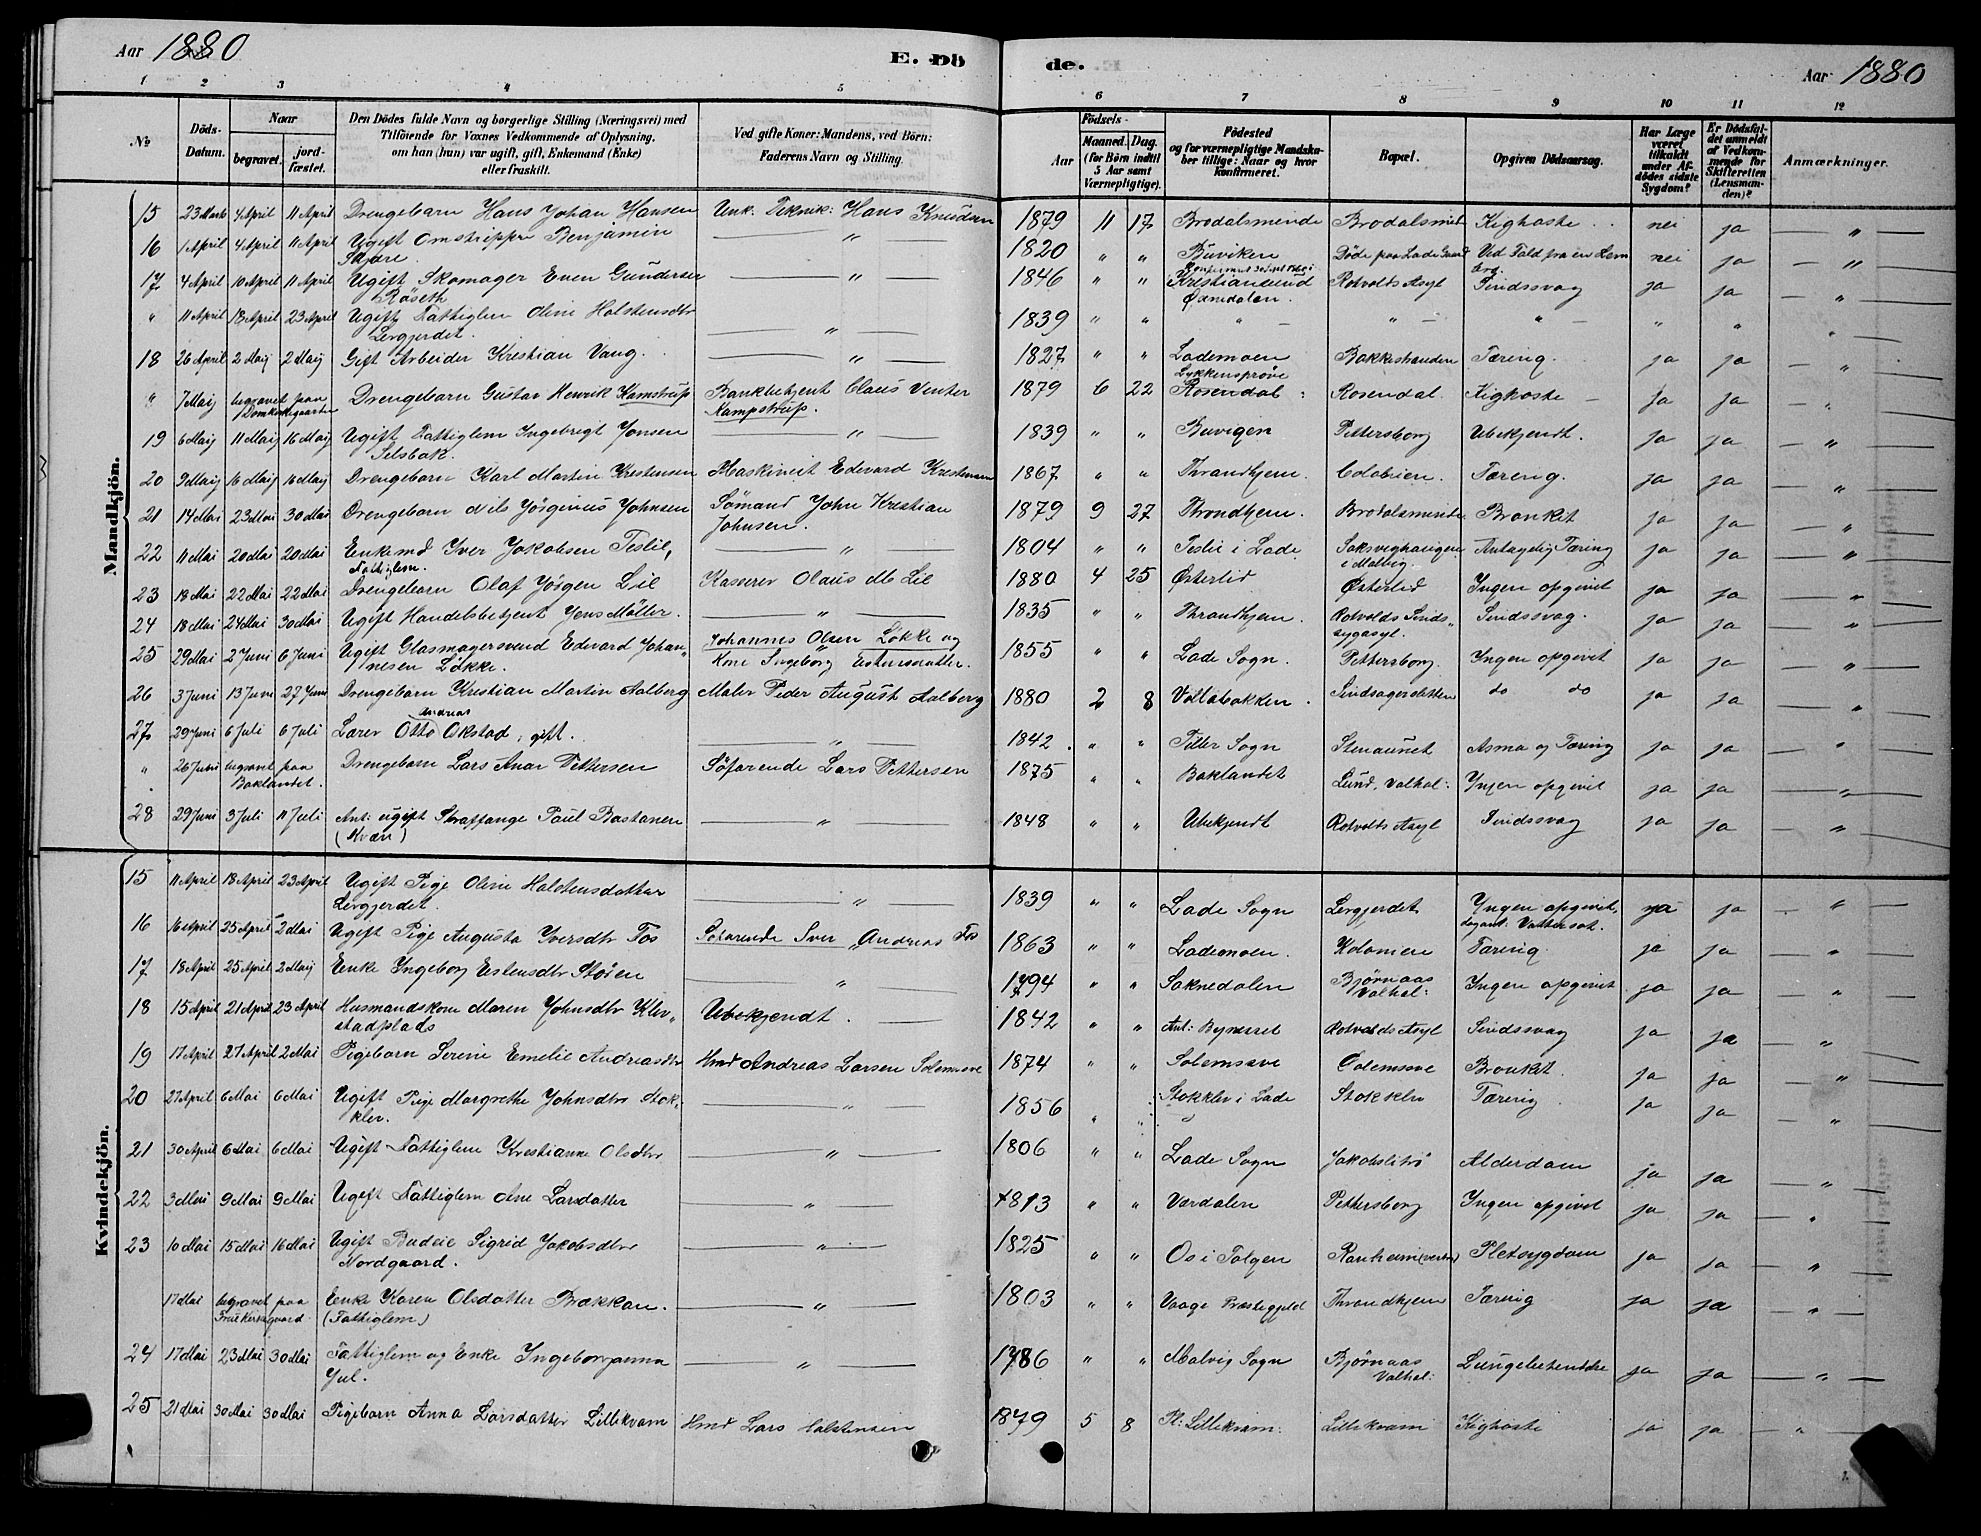 Aar 1880
E. Dö
de.
Aar 1880
1 2 3 4 5 6 7 8 9 10 11 12
No
Döds-Datum.
Naar begravet. jordfæstet.
Den Dödes fulde Navn og borgerlige Stilling (Næringsvei) med Tilföiende for Voxnes Vedkommende af Oplysning, om han (hun) var ugift, gift, Enkemand (Enke) eller fraskilt.
Ved gifte Koner: Mandens, ved Börn: Faderens Navn og Stilling.
Födsels-
Aar
Maaned. Dag.
(for Børn indtil 5 Aar samt Værnepligtige).
Födested og for værnepligtige Mandskaber tillige: Naar og hvor konfirmeret.
Bopæl.
Opgiven Dödsaarsag.
Har Læge været tilkaldt under Afdödes sidste Sygdom?
Er Dödsfaldet anmeldt af Vedkommende for Skifteretten (Lensmanden)?
Anmærkninger.
Mandkjön.
15 23 Marts 4 April 11 April Drengebarn Hans Johan Hansen Hans Knudsen 1879 11 17 Brodalsminde Kighoste nei ja "
16 1 April 4 April 11 April Ugift Benjamin " 1820 " " Buviken Døde paa Lade Ved Fald fra en nei ja "
17 4 April 10 April 11 April Ugift Skomager Even Gundersen Röseth " 1846 " " Kristiansund Rotvolds Asyl Sindssvag ja ja "
" 11 April 18 April 23 April Ugift Fattiglem Oline Halstensdtr Lergjerdet. " 1839 " " " " " " " "
18 26 April 2 Maij 2 Maij Gift Arbeider Krestian Vang. " 1827 " " Lademoen Bakkestranden Tæring. ja ja "
" 7 Maij begravet paa Domkirkegaarden Drengebarn Gustav Henrik Kamstrup Bankbetjent Claus Winter Kampstrup. 1879 6 22 Lykkensprøve Rosendal Rosendal. Kighoste ja ja "
19 6 Maij 11 Maij 16 Maij Ugift Fattiglem Ingebregt Jonsen Selsbak. " 1839 " " Buvigen Pettersborg Ubekjendt. ja ja "
20 9 Maij 16 Maij 16 Maij Drengebarn Karl Martin Krestensen Maskinist Edevard Krestensen 1867 " " Throndhjem. Tæring. ja ja "
21 14 Mai 23 Mai 30 Mai Drengebarn Nils Jörginius Johnsen Sömand John Krestian Johnsen. 1879 9 27 Throndhjem. Brodalsminde Bronkit ja ja "
22 11 Mai 20 Mai 20 Mai Enkemd Iver Jakobsen Teslie, Fattiglem. " 1804 " " Teslie i Lade Saksveghaugen i Malvig Antagelig Tæring ja ja "
23 18 Mai 22 Mai 22 Mai Drengebarn Olaf Jörgen Lie Kasserer Olaus M Lie 1880 4 25 Østerlid Østerlid Ingen opgivet ja ja "
24 18 Mai 24 Mai 30 Mai Ugift Handelsbetjent Jens Möller. " 1835 " " Throndhjem. Rotvolds Sindssygasyl. Sindssvag. ja ja "
25 29 Mai 2 Juni 6 Juni Ugift Glasmagersvend Edvard Johannesen Løkke. Johannes Olsen Løkke og Kone Ingeborg Estensdatter. 1855 " " Lade Sogn. Pettersborg. Ingen opgivet ja ja "
26 3 Juni 13 Juni 27 Juni Drengebarn Krestian Martin Aalberg Maler Peder August Aalberg 1880 2 8 Vollabakken. do do ja ja "
27 29 Juni 6 Juli 6 Juli Lærer Otto Andreas Okstad, gift. " 1842. " " Tiller Sogn Stenaunet Asma og Tæring ja ja "
" 26 Juni begravet paa Baklandet. Drengebarn Lars Anar Pettersen Söfarende Lars Pettersen 1875 " " Baklandet Lund, Valhal: Ingen opgivet ja ja "
28 29 Juni 3 Juli 11 Juli Ant: ugift Straffange Paul Bastanen " 1848 " " Ubekjendt Rotvolds Asyl Sindssvag ja ja "
Kvindekjön.
15 11 April 18 April 23 April Ugift Pige Oline Halstensdatter Lergjerdet. " 1839 " " Lade Sogn Lergjerdet Ingen opgivet, ja ja "
16 16 April 25 April 2 Mai Ugift Pige Augusta Iversdtr Fos Söfarende Iver Andreas Fos 1863 " " Lademoen. Kolonien Tæring. ja ja "
17 18 April 25 April 2 Maij Enke Ingeborg Estensdtr Stören " 1794 " " Soknedalen Bjørnaas Valhal: Ingen opgivet. ja ja "
18 15 April 21 April 23 April Husmandskone Maren Johnsdtr Klevstadplads Ubekjendt. 1842 " " Ant: Bynesset Rotvolds Asyl Sindssvag ja ja "
19 17 April 27 April 2 Mai Pigebarn Serine Emelie Andreasdtr Hmd Andreas Larsen Solemsøve 1874 " " Solemsøve Solemsøve Bronkit. ja ja "
20 27 April 6 Mai 6 Mai Ugift Pige Margrethe Johnsdtr Stokklev. " 1856 " " Stokklev i Lade Stokklev Tæring. ja ja "
21 30 April 6 Mai 6 Mai Ugift Fattiglem Krestianne Olsdtr " 1806 " " Lade Sogn Jakobslitrø Alderdom ja ja "
22 3 Mai 9 Mai 9 Mai Ugift Fattiglem Ane Larsdatter " 1813 " " Værdalen Pettersborg Ingen opgivet ja ja "
23 10 Mai 15 Mai 16 Mai Ugift Budeie Sigrid Jakobsdtr Nordgaard. " 1825 " " Os i Tolgen Ranheim (vestre) Pletsygdom ja ja "
17 Mai begravet paa Enke Karen Olsdatter Brækkan. (Fattiglem) " 1803 " " Vaage Præstegjeld Throndhjem Tæring ja ja "
24 17 Mai 23 Mai 30 Mai Fattiglem og Enke Ingeborganna Jul. " 1786 " " Malvig Sogn Bjørnaas Valhal: Lungebetendelse ja ja "
25 21 Mai 30 Mai 30 Mai Pigebarn Anna Larsdatter Lillekvam Hmd Lars Halstensen 1879 5 8 Pl: Lillekvam: Lillekvam Kighoste ja ja "